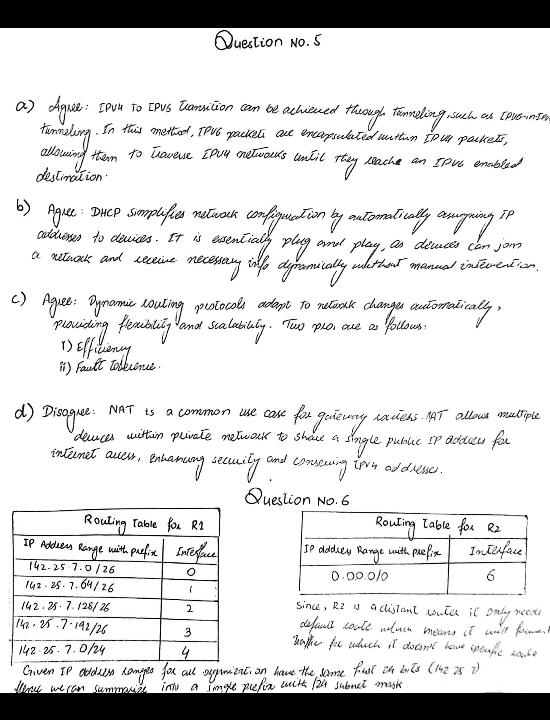 Question No. 5
a) Agree: IPV4 To IPV6 Transition can be achieved through Tunneling, such as IPV6-in-IPV
tunneling. In this method, IPV6 packets are encapsulated within IPV4 packets,
allowing them to traverse IPV4 networks until they reache an IPV6 enabled
destination.
b) Agree: DHCP simplifies network configuration by automatically assigning IP
addresses to devices. IT is essentially plug and play, as devices can join
a network and receive necessary info dynamically without manual intervention.
c) Agree: Dynamic routing protocols adapt to network changes automatically,
providing flexibility and scalability. Two pros are as follows:
i) Efficiency
ii) Fault tolerence.
d) Disagree: NAT is a common use case for gateway routers. NAT allows multiple
devices within private network to share a single public IP address for
internet access, enhancing security and conserving IPV4 addresses.
Question No. 6
Routing Table for R1
IP Address Range with prefix Interface
142.25.7.0/26 0
142.25.7.64/26 1
142.25.7.128/26 2
142.25.7.192/26 3
142.25.7.0/24 4
Routing table for R2
IP address Range with prefix Interface
0.00.0/0 6
Since, R2 is a distant router it only needs
default route which means it will forward
traffic for which it doesn't have specific route
Given IP address ranges for all organization have the same first 24 bits (142 25 7)
Hence we can summarize into a single prefix with /24 subnet mask